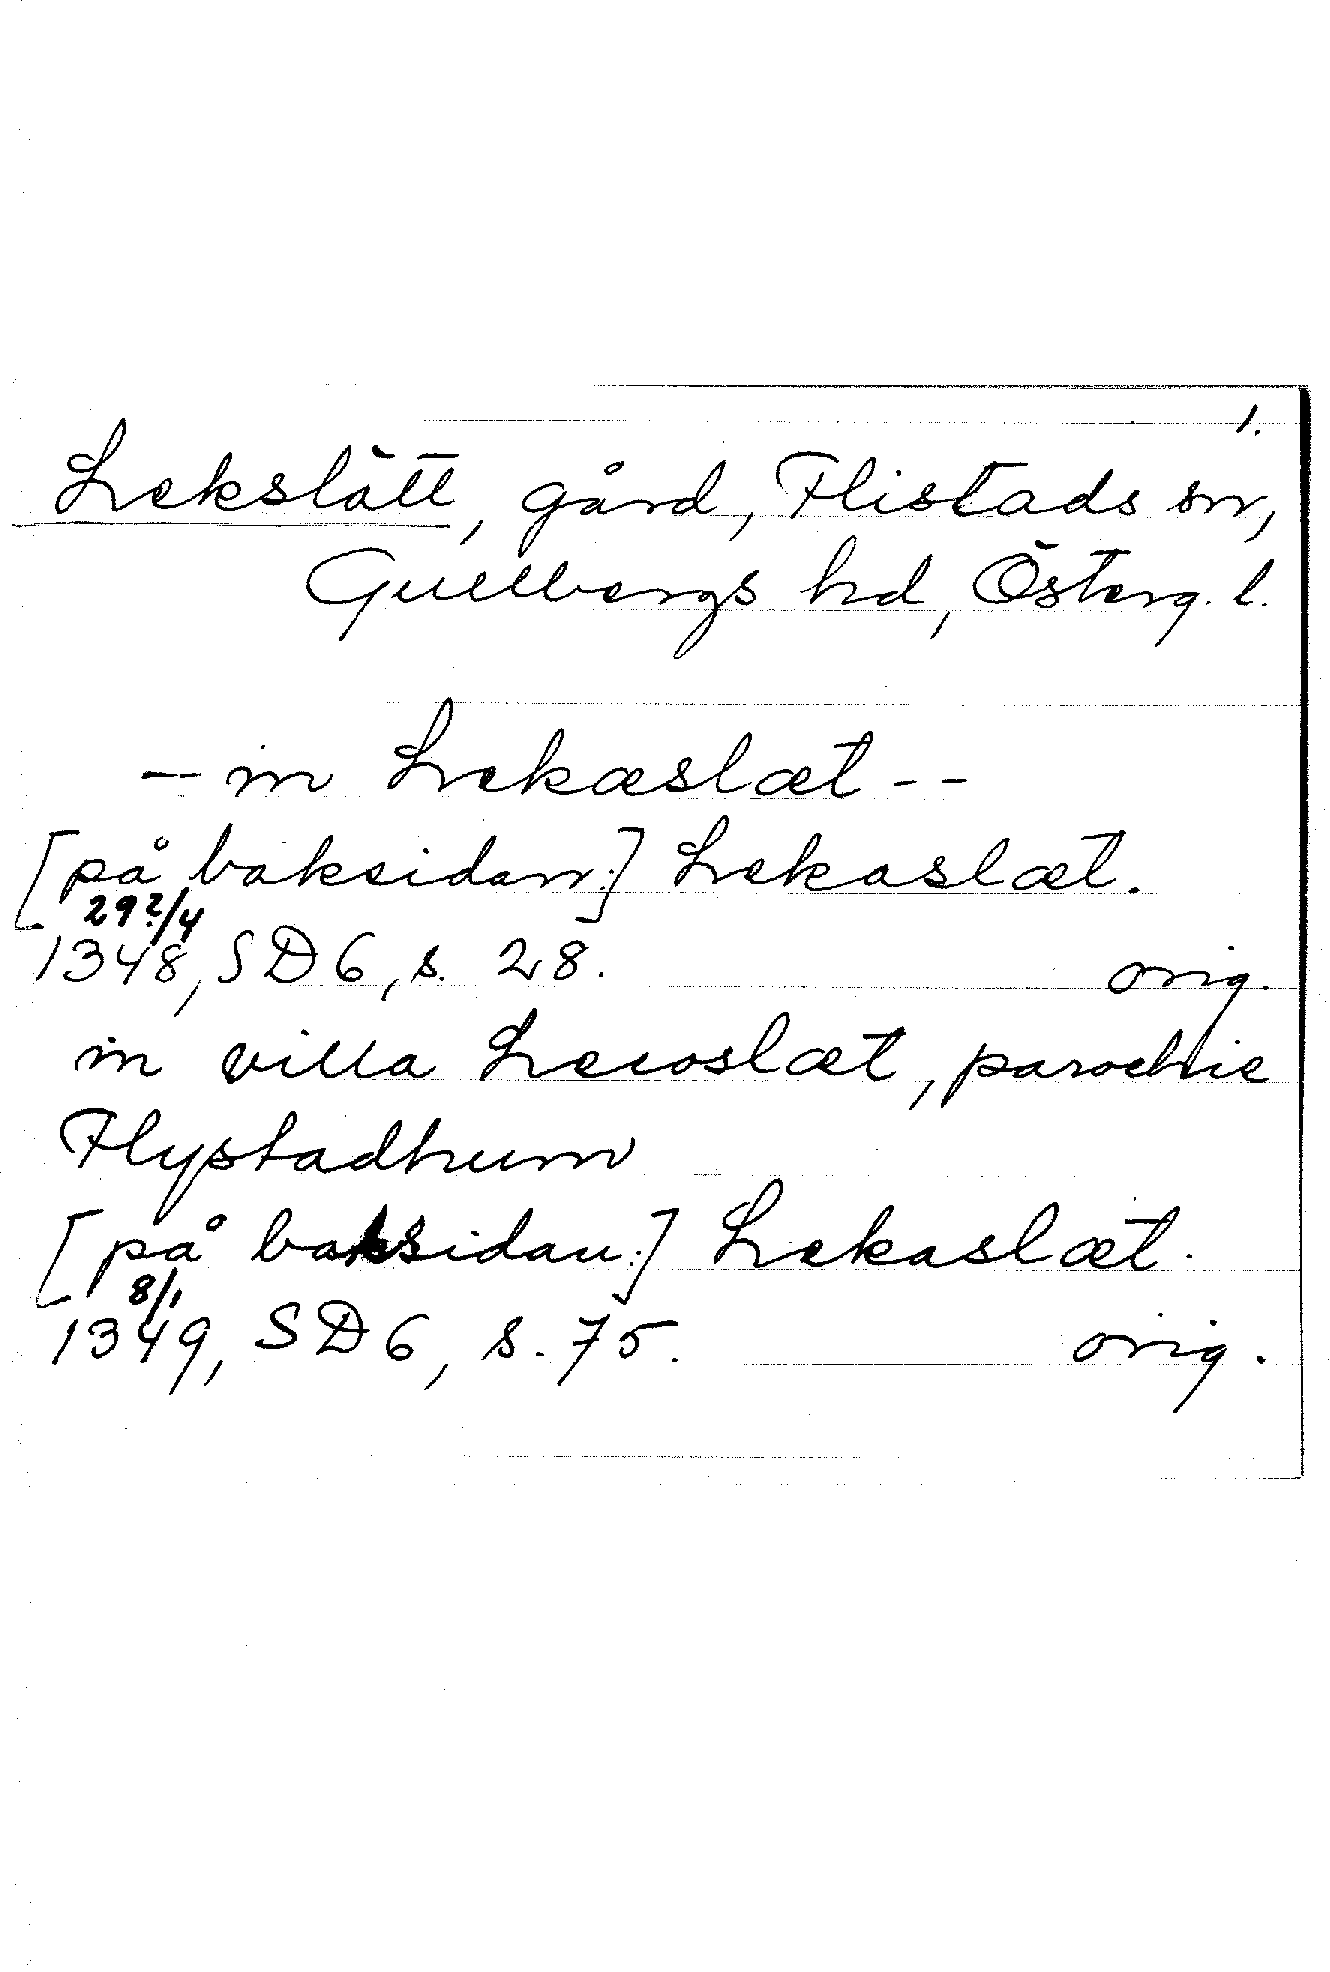 1.
Lekslätt, gård, Flistads sn,
Gullbergs hd, Österg. l.
- in Lekæslæt --
[på baksidan:] Lekaslæt.
29?/4
1348, SD 6, s. 28. orig.
in villa Lecoslæt, parochie
Flystadhum
[på baksidan:] Lekaslæt.
8/1
1349, SD 6, s. 75. orig.